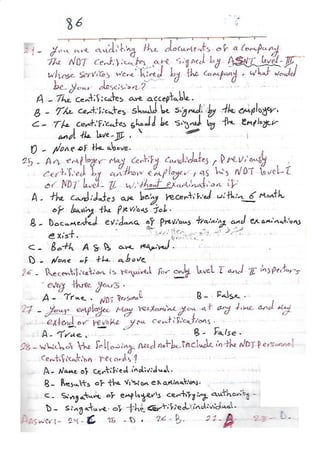 86
24- you are auditing the documents of a company
The NDT certificates are signed by ASNT level-III
whose services were hired by the company. what would
be your descision?
A - The certificates are acceptable.
B - The certificates should be signed by the employer.
C - The certificates should be signed by the Employer
and the leve-III.
D - None of the above.
25- An employer may certify candidates, previously
certified by another employer, as his NDT level-I
or NDT level-II without examination if
A. the candidates are being recertified within 6 Month
of leaving the previous Job.
B- Documented evidance of previous training and examinations
exist.
C- Both A & B are required.
D- None of the above
26- Recertification is required for only level I and II inspectors
every three years.
A- True. B- False.
NDT Personal
27- your employee may reexamine you at any time and may
extend or revoke you certifications.
A- True. B- False.
28- which of the following need not be include in the NDT Personnel
Certification records?
A- Name of certified individual.
B- Results of the vision examinations.
C- Singature of employer's certifying authority-
D- Singature of the certified individual.
Answers:- 24- C 25-D. 26-B. 27-A 28-D.